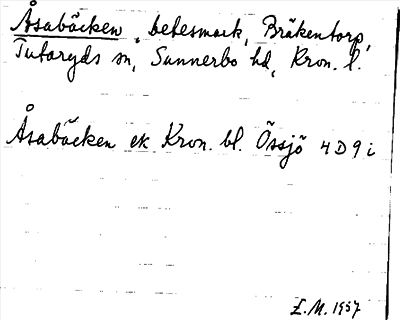 Åsabäcken, betesmark, Bräkentorp,
Tutaryds sn, Sunnerbo hd, Kron. l.
Åsabäcken ek Kron. bl. Össjö 4D9i
E.M. 1957